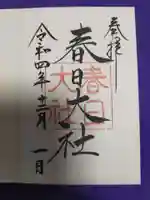 奉拝
春日大社
春日
大社
令和四年十二月一日